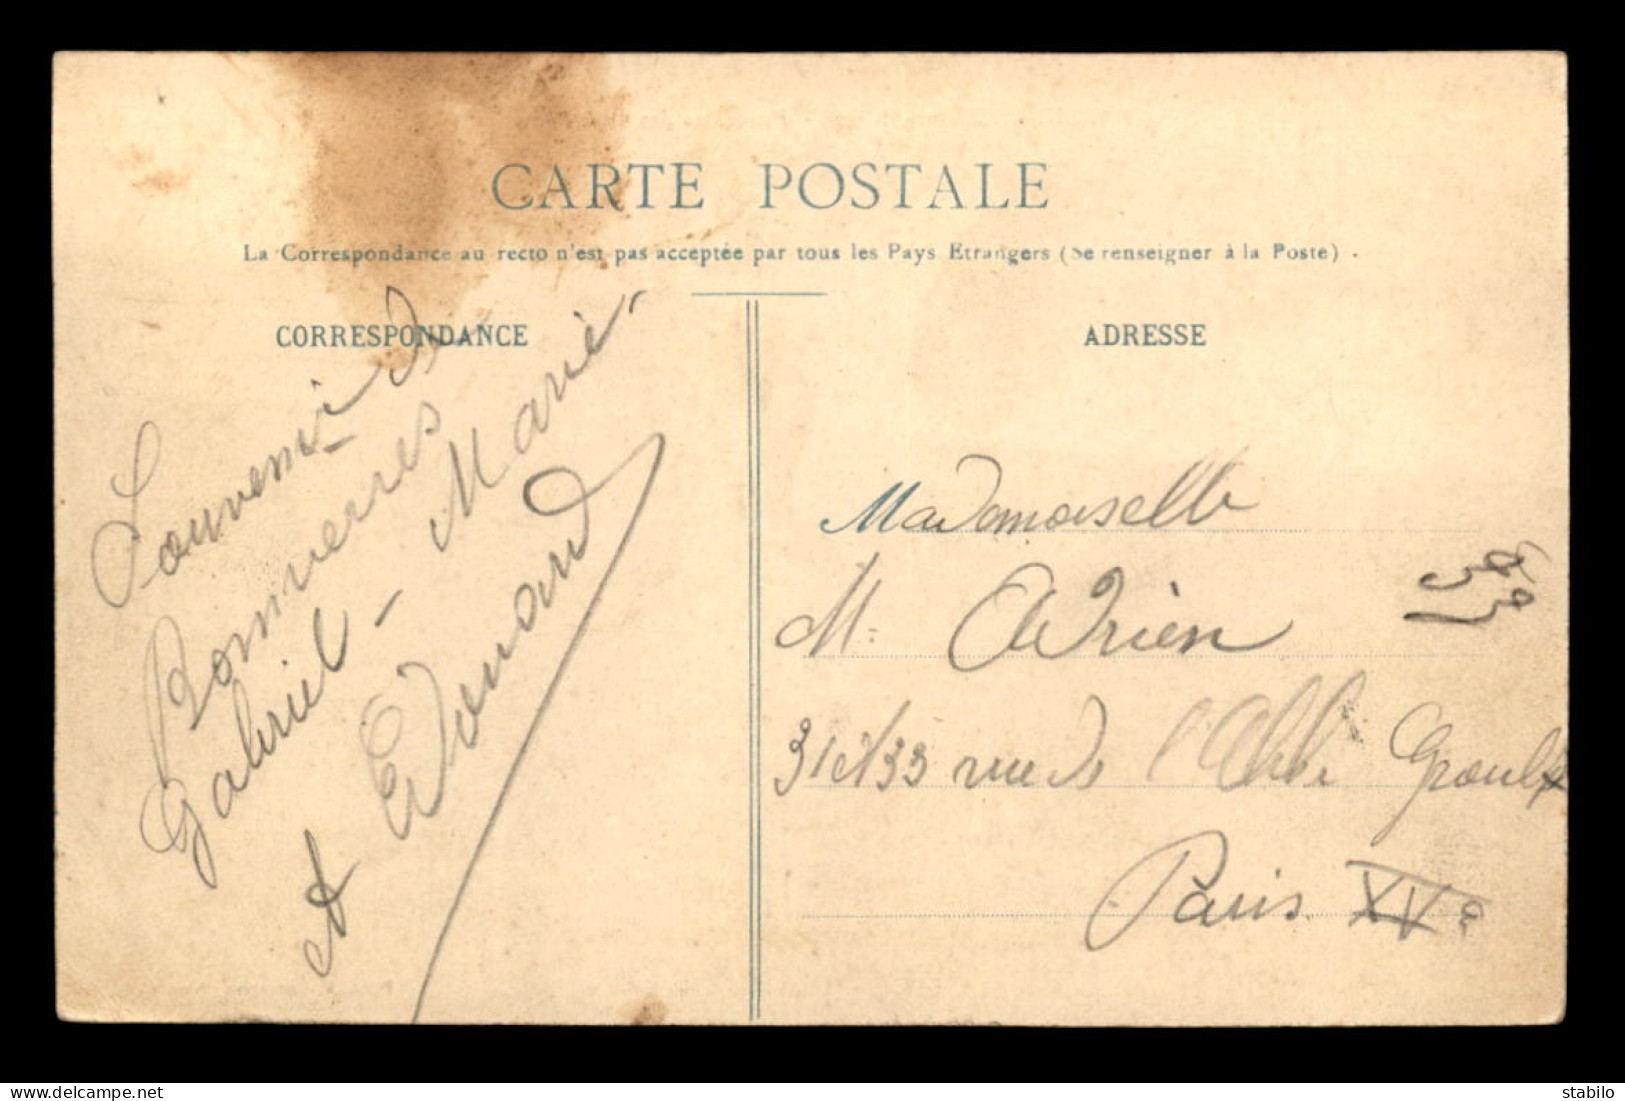 CARTE POSTALE
La Correspondance au recto n'est pas acceptée par tous les Pays Etrangers (Se renseigner à la Poste) .
CORRESPONDANCE
Souvenir de
Bonnieres
Gabriel - Marie -
et Edmond
ADRESSE
Mademoiselle
M. Adrien
31 et 33 rue de l'Abbé Groult
Paris XVe
33
stabilo